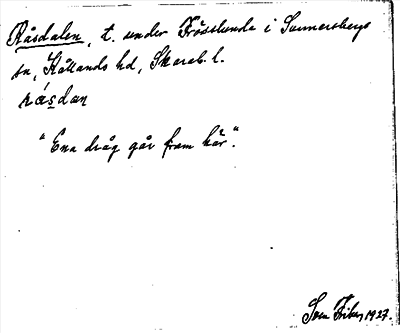 Råsdalen, t. under Frösslunda i Sunnersbergs
sn, Kållands hd, Skarab. l.
rásdan
"Ena dråg går fram här".
1927.